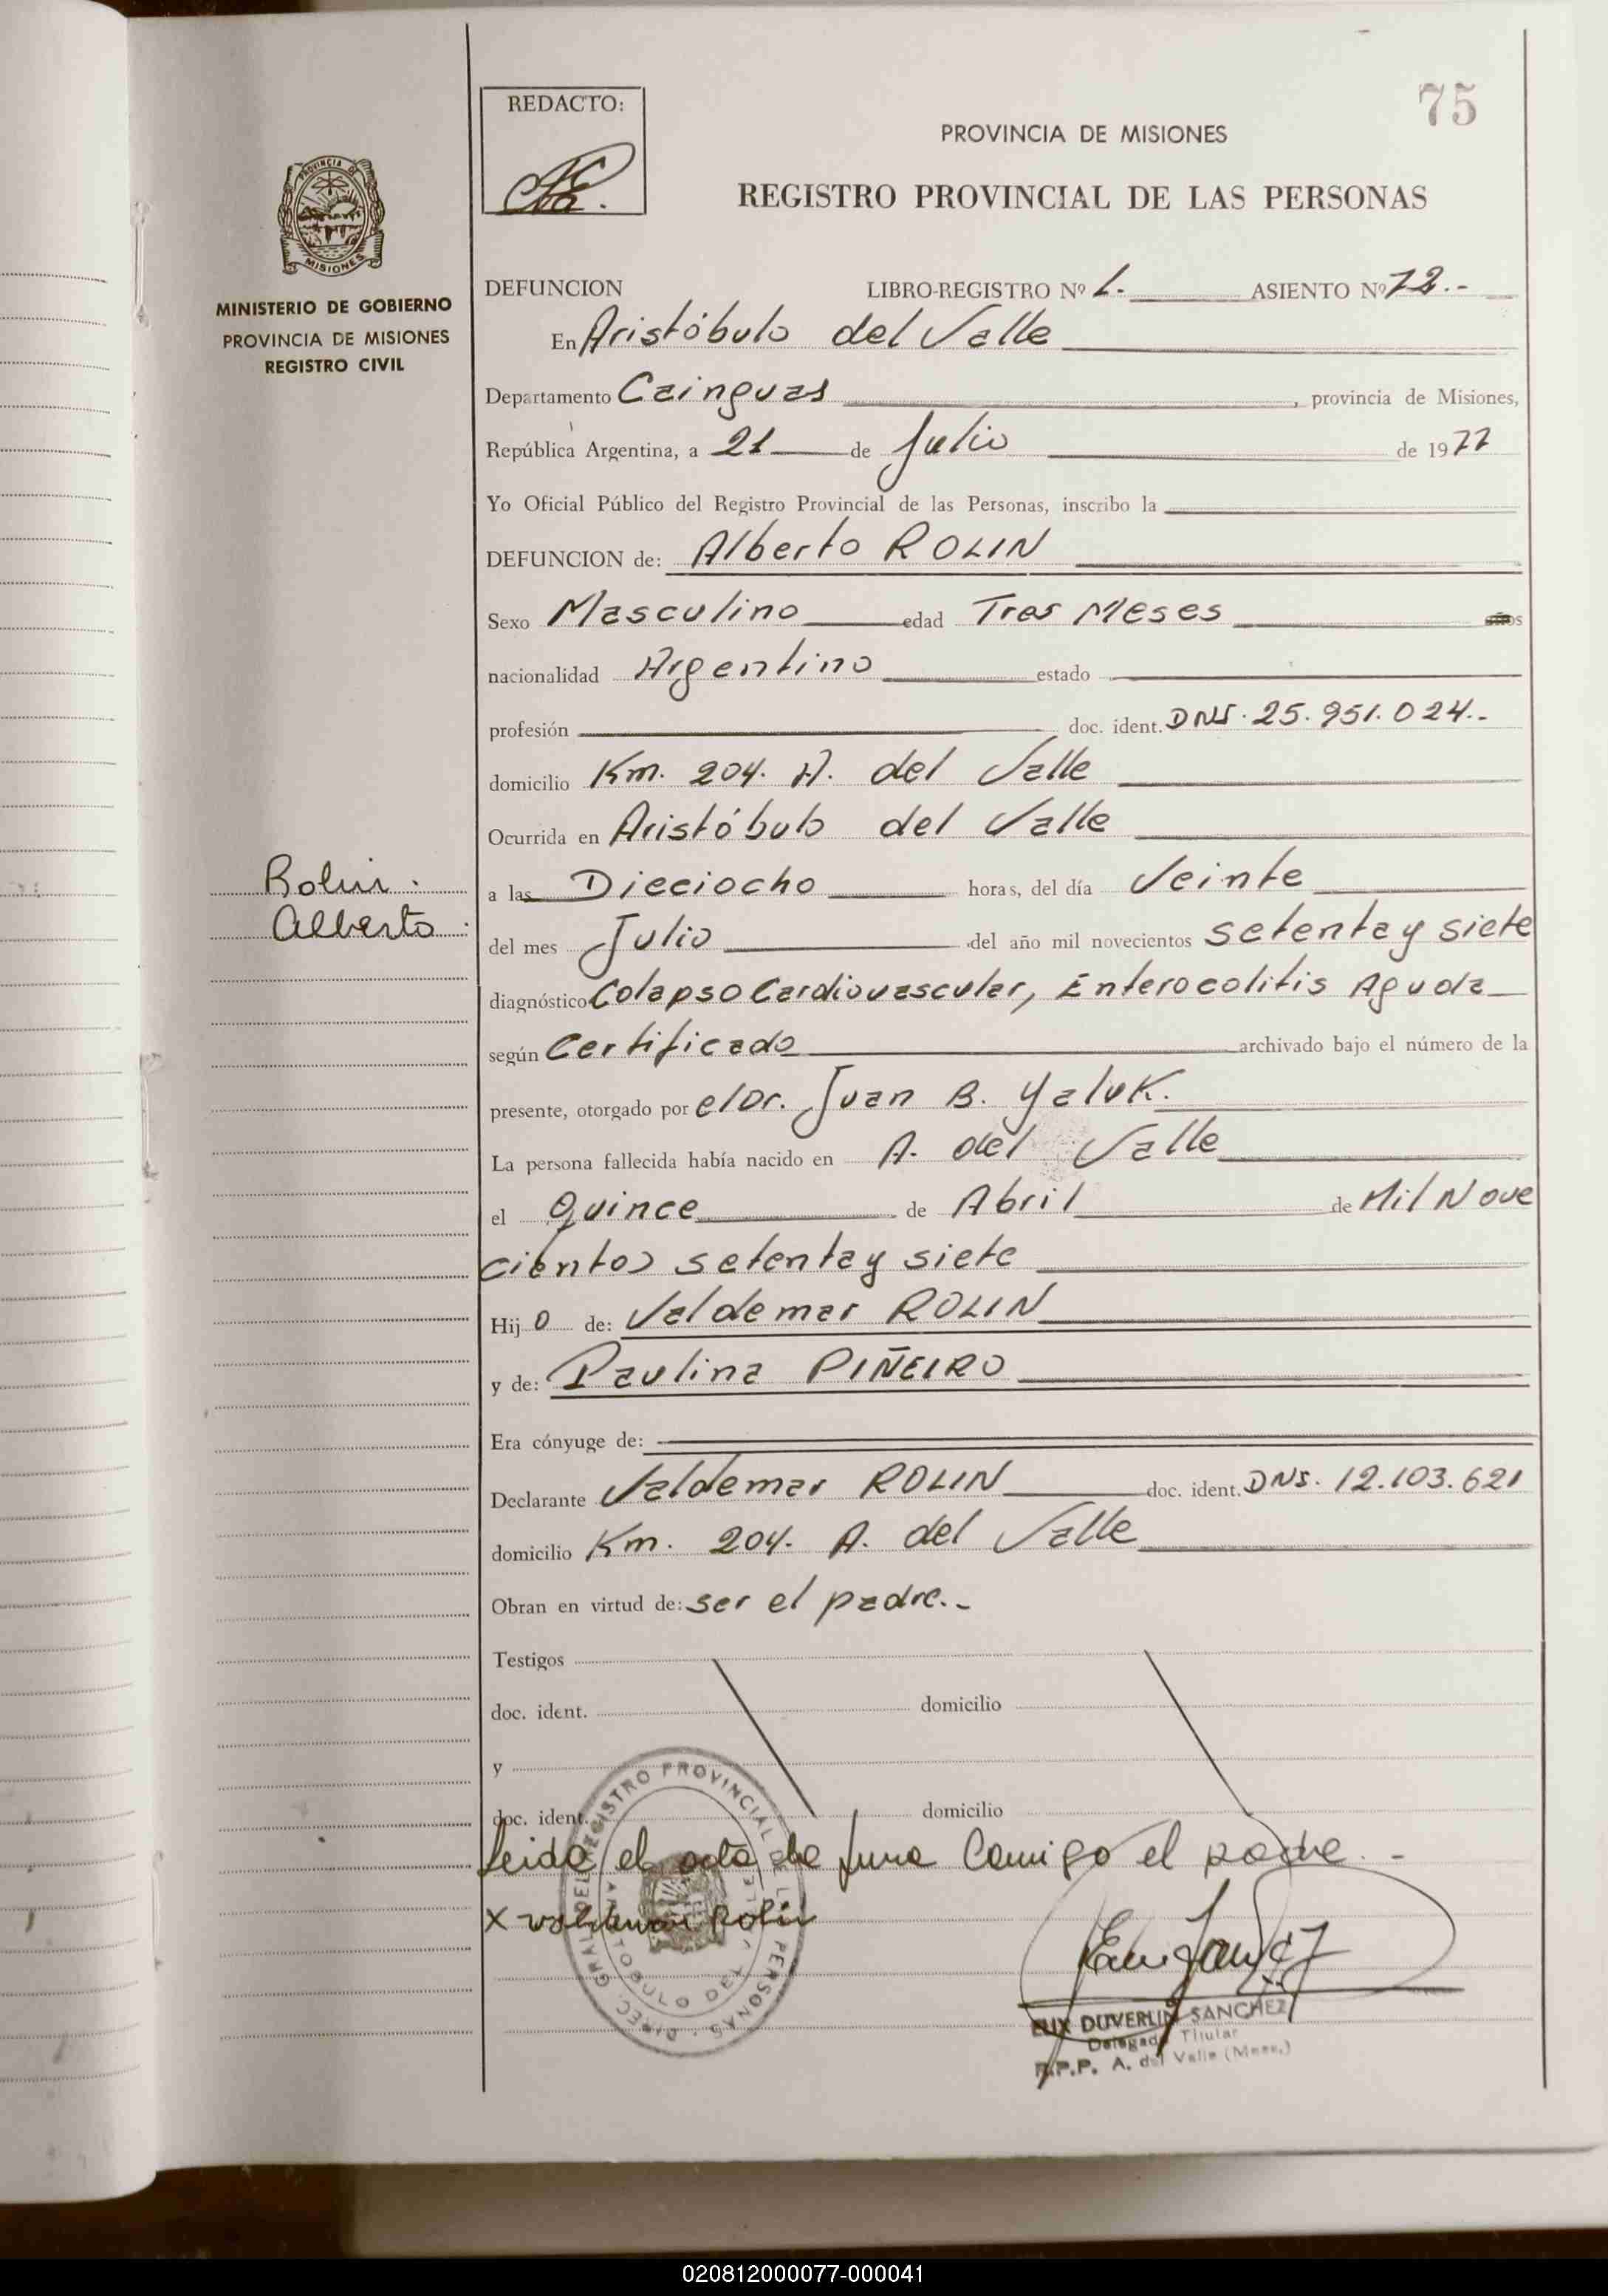 75
REDACTO:
PROVINCIA DE MISIONES
REGISTRO PROVINCIAL DE LAS PERSONAS
PROVINCIA DE
MISIONES
MINISTERIO DE GOBIERNO
PROVINCIA DE MISIONES
REGISTRO CIVIL
DEFUNCION LIBRO-REGISTRO Nº 1.- ASIENTO Nº 72.-
En Aristóbulo del Valle
Departamento Cainguas, provincia de Misiones,
República Argentina, a 21 de Julio de 1977
Yo Oficial Público del Registro Provincial de las Personas, inscribo la
DEFUNCION de: Alberto ROLIN
Sexo Masculino edad Tres Meses
nacionalidad Argentino estado
profesión doc. ident. DNI. 25.951.024.-
domicilio Km. 204. A. del Valle
Ocurrida en Aristóbulo del Valle
Rolin.
Alberto
a las Dieciocho horas, del día Veinte
del mes Julio del año mil novecientos setenta y siete
diagnóstico Colapso Cardiovascular, Enterocolitis Aguda
según Certificado archivado bajo el número de la
presente, otorgado por el Dr. Juan B. Yaluk.
La persona fallecida había nacido en A. del Valle
el Quince de Abril de Mil Nove
cientos setenta y siete
Hijo de: Valdemar ROLIN
y de: Paulina PIÑEIRO
Era cónyuge de:
Declarante Valdemar ROLIN doc. ident. DNI. 12.103.621
domicilio Km. 204. A. del Valle
Obran en virtud de: ser el padre.-
Testigos
doc. ident. domicilio
y
doc. ident. domicilio
Leida el acta la firma Conmigo el padre.-
X Rolin
DIREC. GRAL. DEL REGISTRO PROVINCIAL DE LAS PERSONAS
DUVERLIN SANCHEZ
Delegado Titular
R.P.P. A. del Valle (Mnes.)
020812000077-000041